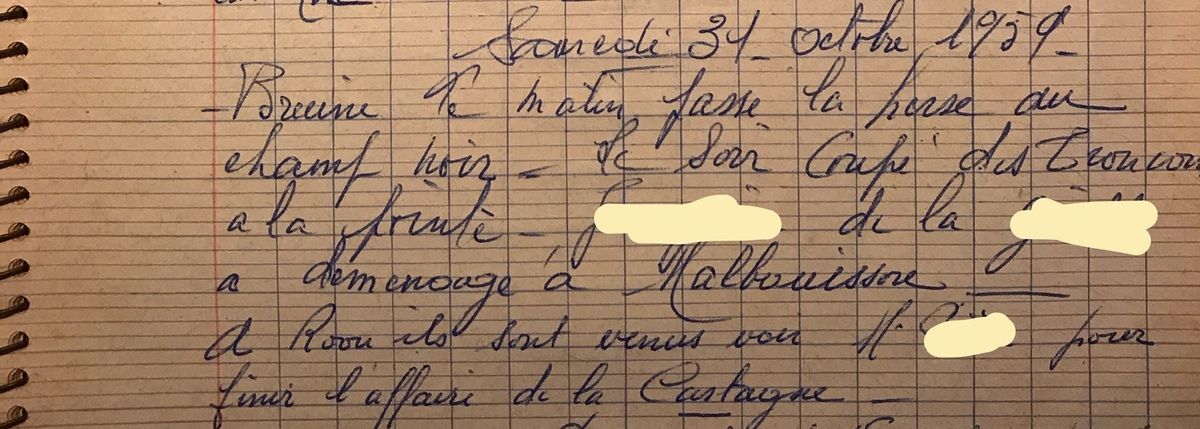 Samedi 31 octobre 1959
- Breuine le matin passe la herse au
champ noir - le soir coupé des troncons
a la - de la
a demenagé à Malbouissone
A Roou ils sont venus voir Mr pour
finir l'affaire de la Castagne -